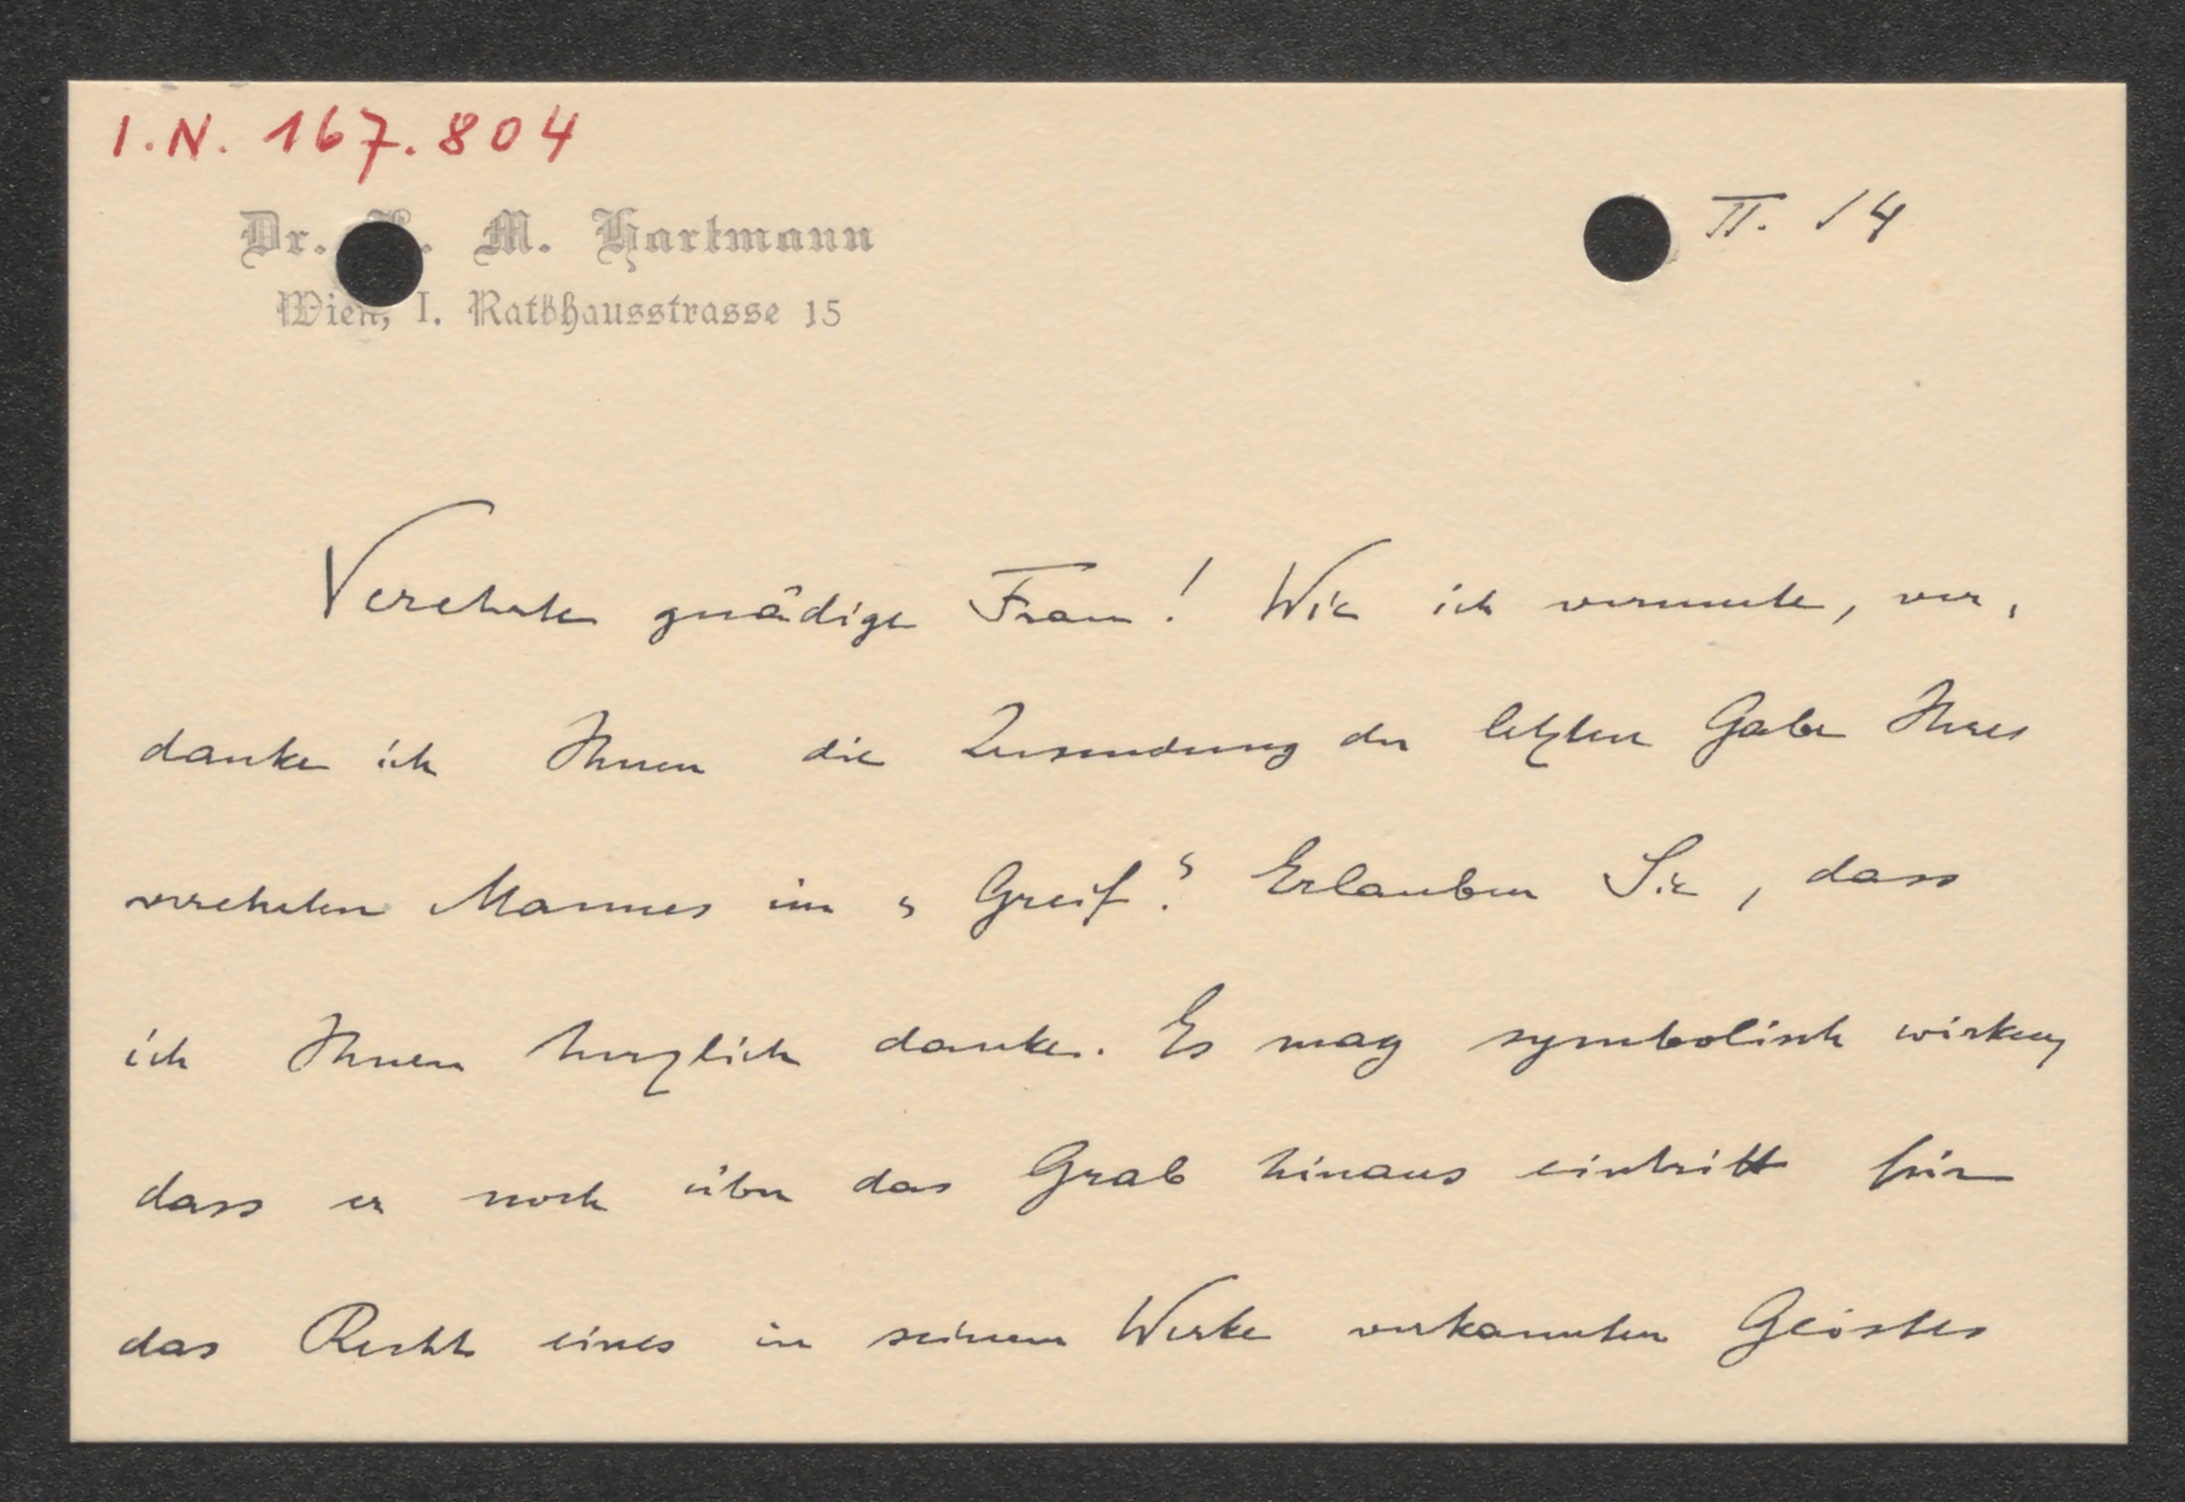 I.N. 167.804
II. 14
Dr. M. Hartmann
Wien, I. Rathhausstrasse 15
Verehrte gnädige Frau! Wie ich vermute, ver-
danke ich Ihnen die Zusendung der letzten Gabe Ihres
verehrten Mannes im „Greif". Erlauben Sie, dass
ich Ihnen herzlich danke. Es mag symbolisch wirken,
dass er noch über das Grab hinaus eintritt für
das Recht eines in seinem Werke verkannten Geistes